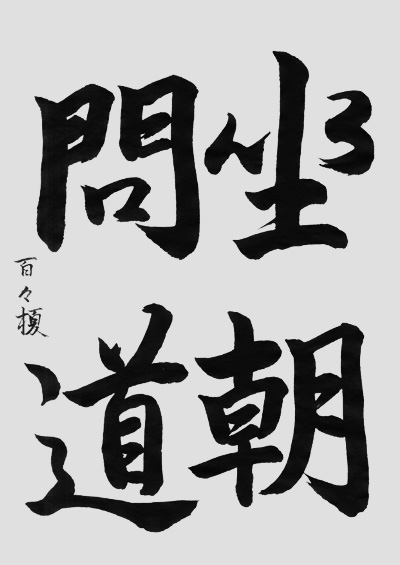 坐朝
問道
百々榎